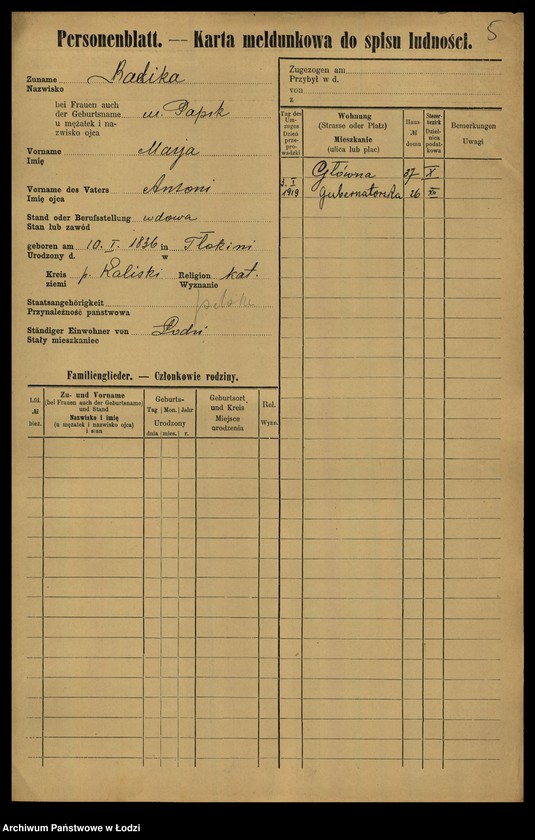 5
Personenblatt. — Karta meldunkowa do spisu ludności.
Zuname
Nazwisko
bei Frauen auch
der Geburtsname
u mężatek i na-
zwisko ojca
Vorname Marja
Imię
Vorname des Vaters Antoni
Imię ojca
Stand oder Berufsstellung wdowa
Stan lub zawód
geboren am 10. I. 1836 in Tłokini
Urodzony d. w
Kreis p. Kaliski Religion kat.
ziemi Wyznanie
Staatsangehörigkeit
Przynależność państwowa
Ständiger Einwohner von Łodzi
Stały mieszkaniec
Familienglieder. — Członkowie rodziny.
Lfd. № bież.
Zu- und Vorname
(bei Frauen auch der Geburtsname)
und Stand
Nazwisko i imię
(u mężatek i nazwisko ojca)
i stan
Geburts-
Tag Mon. Jahr
Urodzony
dnia mies. r.
Geburtsort
und Kreis
Miejsce
urodzenia
Rel.
Wyzn.
Zugezogen am
Przybył w d.
von
z
Tag des
Um-
zuges
Dzień
prze-
pro-
wadzki
Wohnung
(Strasse oder Platz)
Mieszkanie
(ulica lub plac)
Haus-
№
domu
Steuer-
bezirk
Dziel-
nica
podat-
kowa
Bemerkungen
Uwagi
Główna 37 X
3. I 1919 Gubernatorska 26
Archiwum Państwowe w Łodzi